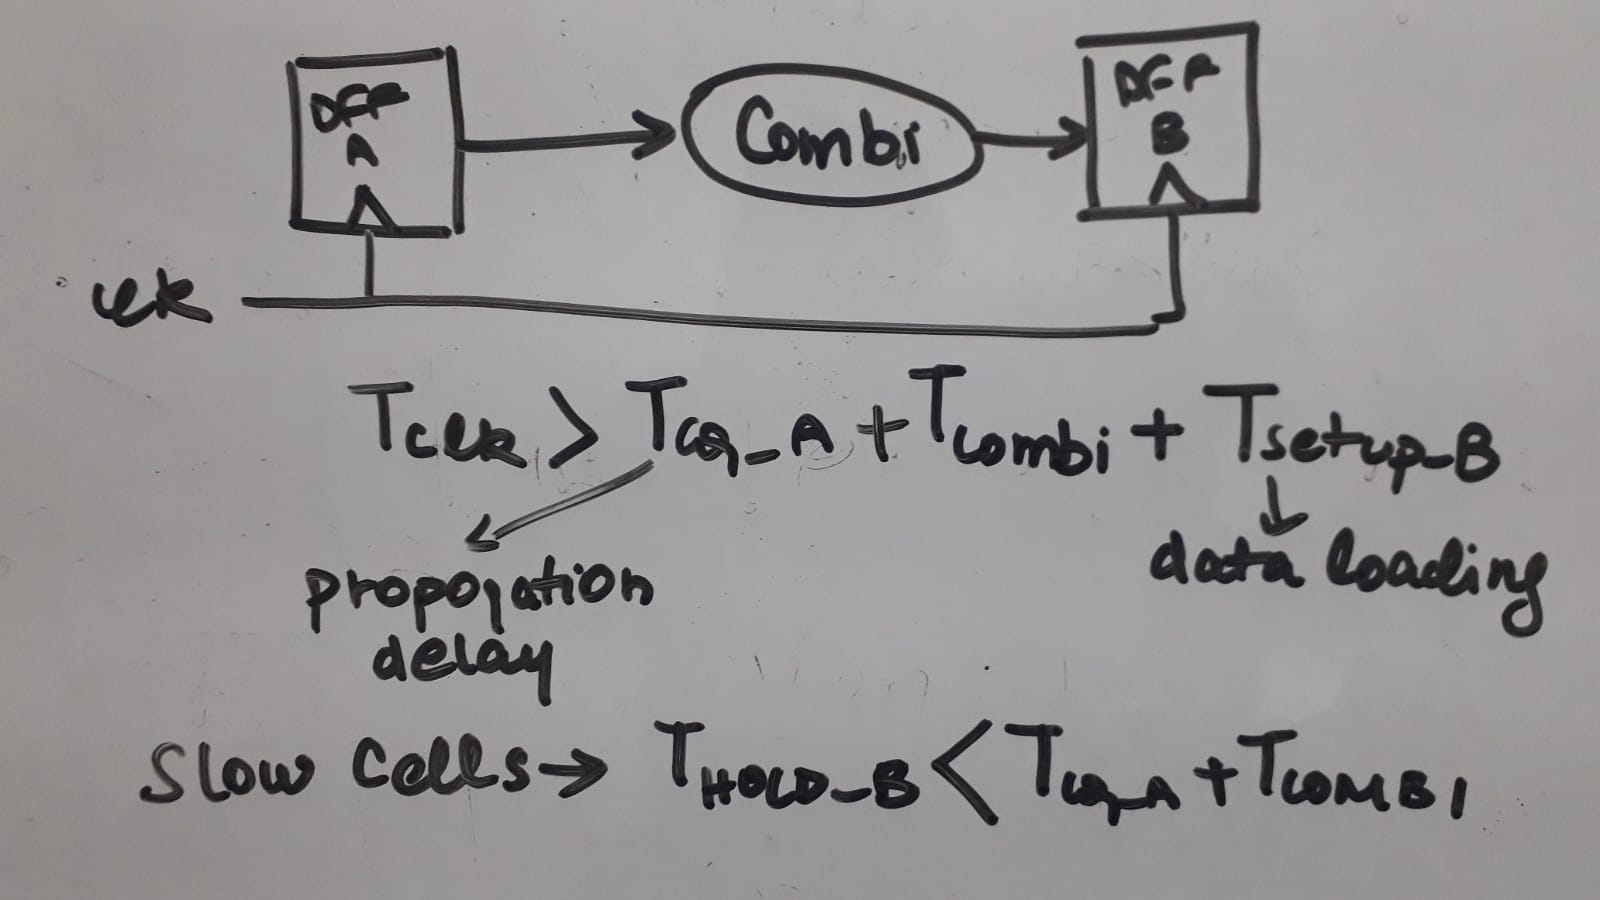 DFF
A
Combi
DFF
B
clk
Tclk > Tcq_A + Tcombi + Tsetup_B
propogation
delay
data loading
Slow Cells → THOLD_B < Tcq_A + TCOMBI